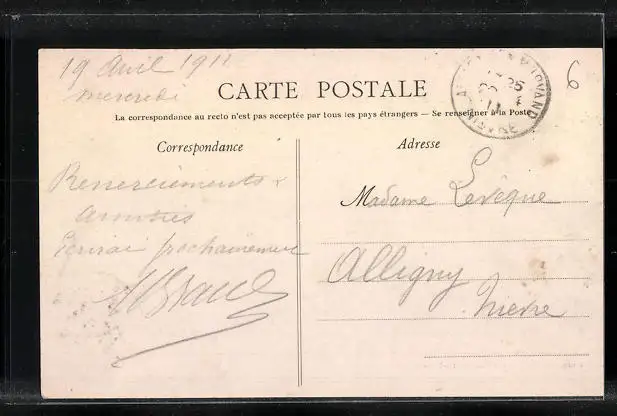 19 Avril 1911
mercredi
CARTE POSTALE
La correspondance au recto n'est pas acceptée par tous les pays étrangers — Se renseigner à la Poste
6
Correspondance
Remerciements &
amitiés
Ecrirai prochainement
Adresse
Madame Levêque
Alligny
Nièvre